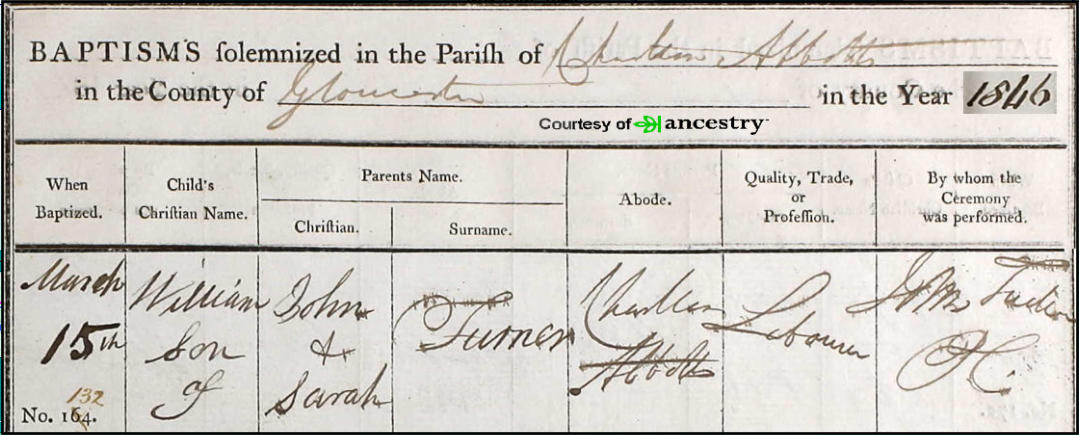 BAPTISMS ſolemnized in the Pariſh of Charlton Abbotts
in the County of Gloucester in the Year 1846
Courtesy of ancestry
When Baptized.
Child's Chriſtian Name.
Parents Name.
Chriſtian.
Surname.
Abode.
Quality, Trade, or Profeſſion.
By whom the Ceremony was performed.
March
15th
No. 164.
132
William
Son
of
John
&
Sarah
Turner
Charlton
Abbotts
Labourer